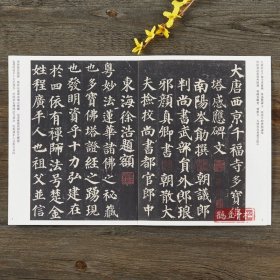 大唐西京千福寺多寶
塔感應碑文
南陽岑勛撰朝議郎
判尚書武部員外郎琅
邪顏真卿書朝散大
夫撿校尚書都官郎中
東海徐浩題額
粵妙法蓮華諸佛之秘藏
也多寶佛塔證經之踴現
也發明資乎十力弘建在
於四依有禪師法号楚金
姓程廣平人也祖父並信